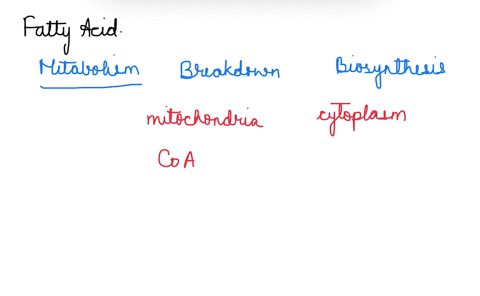 Fatty Acid.
Metabolism Breakdown Biosynthesis
mitochondria cytoplasm
CoA